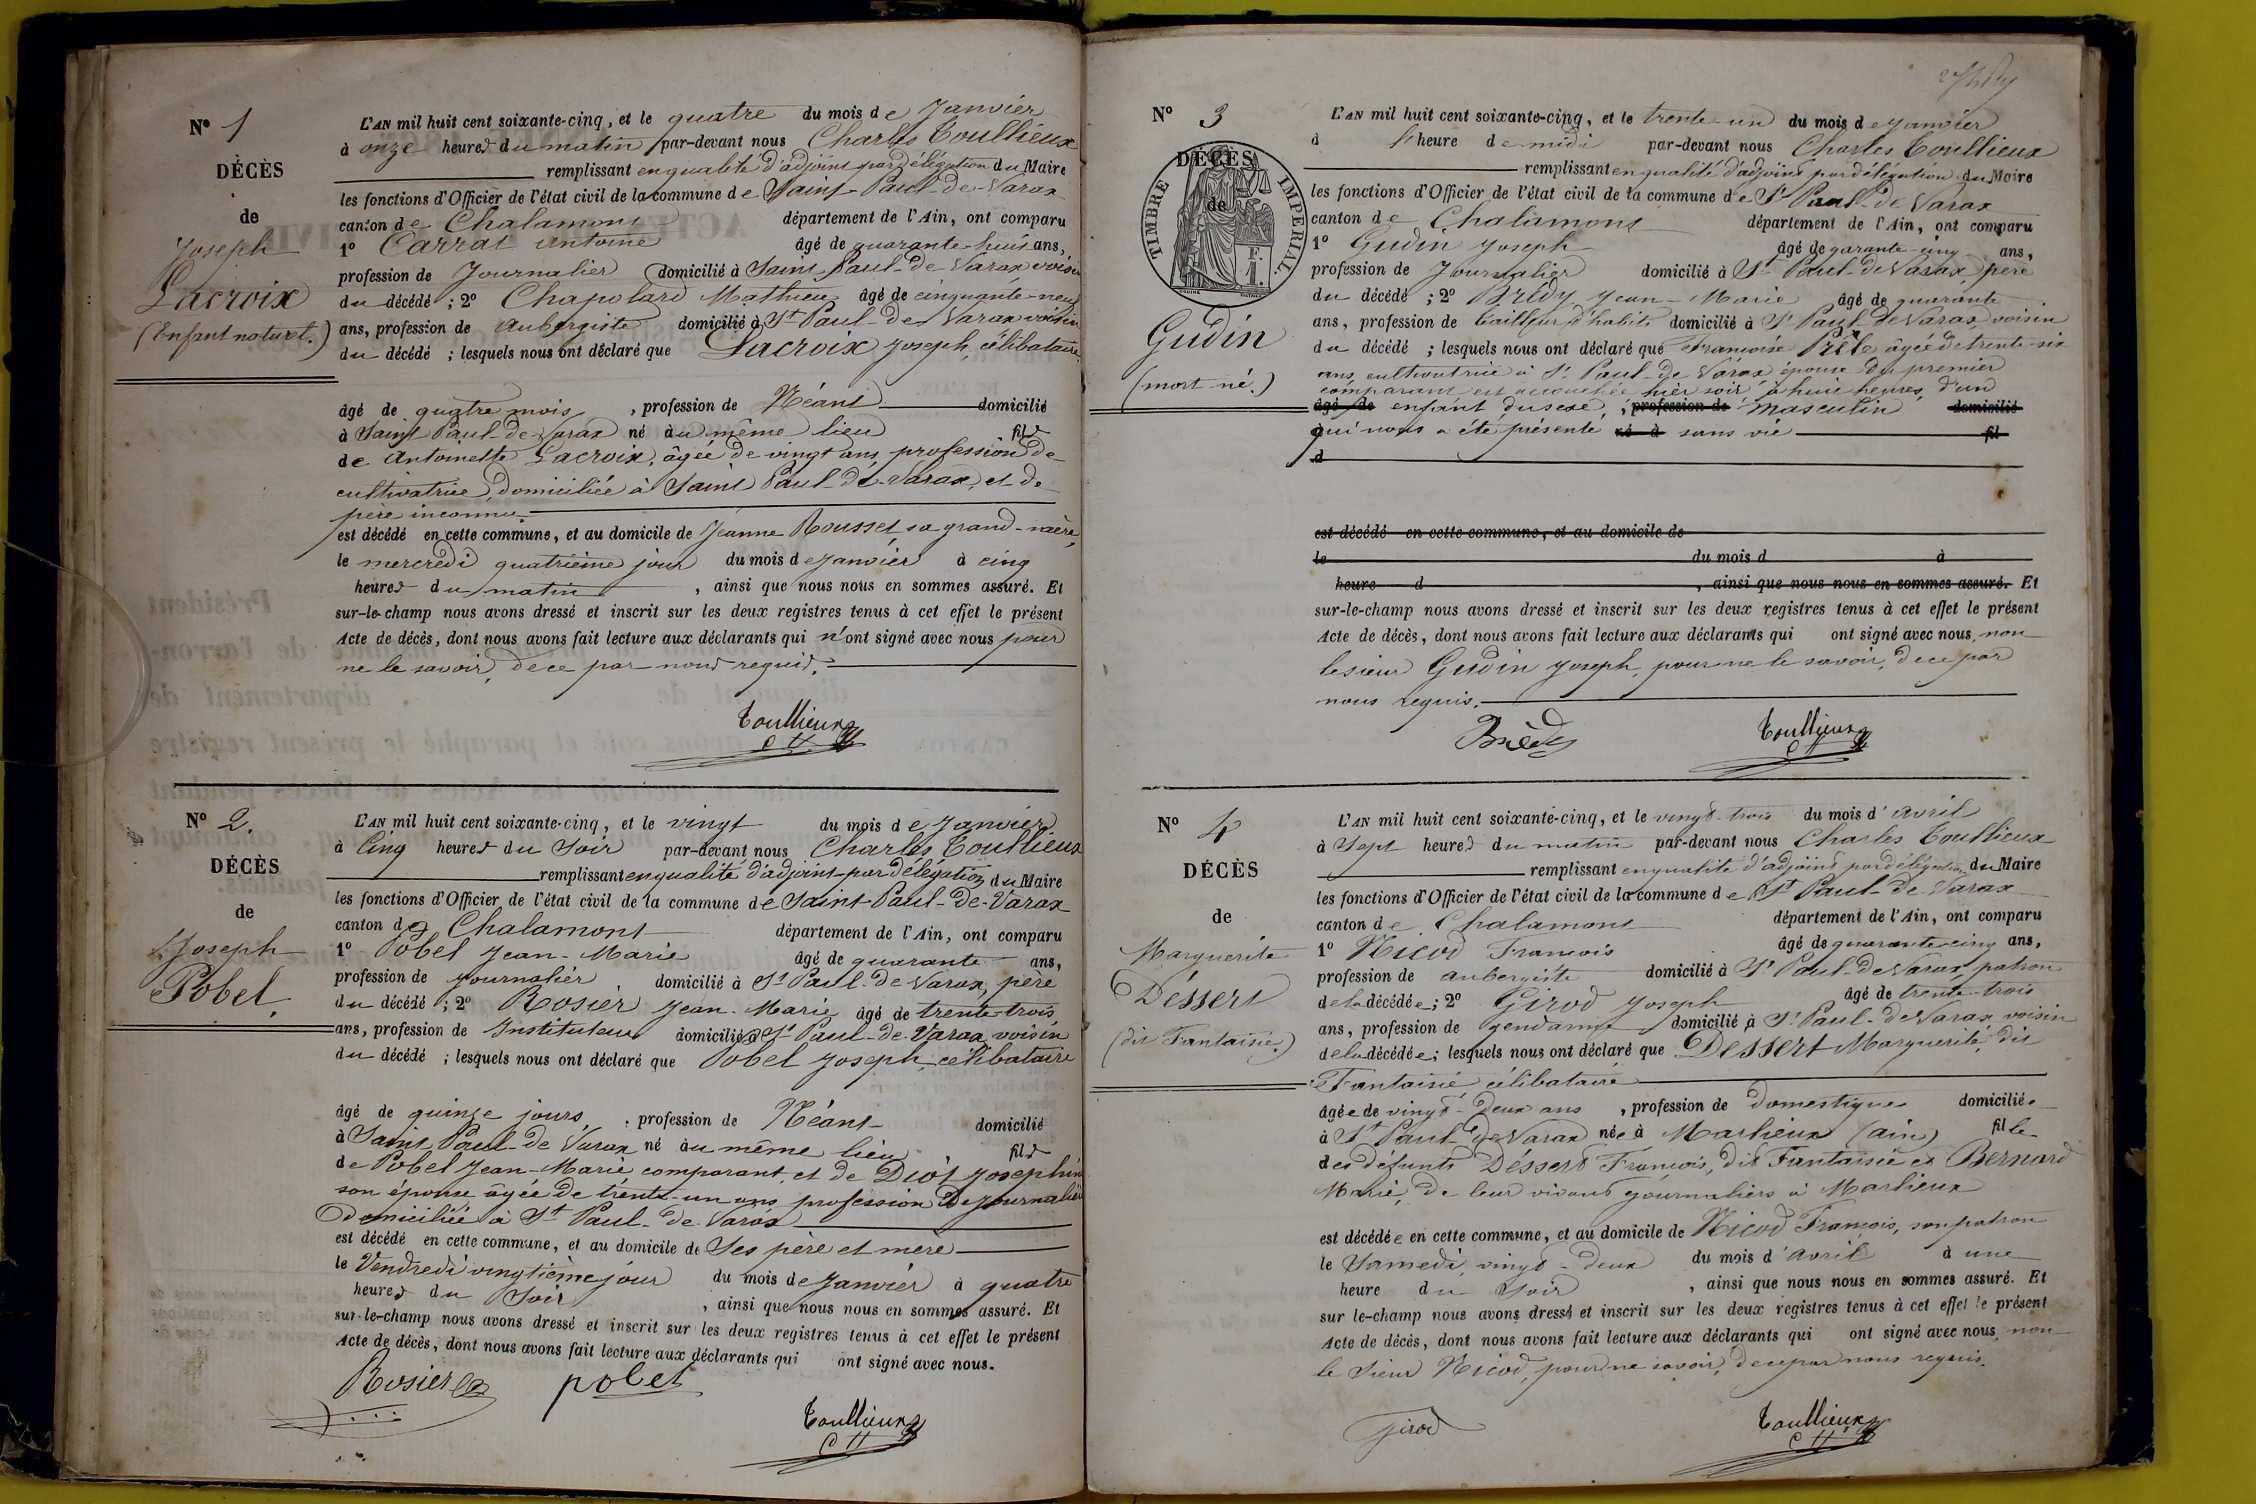 Nº 1
DÉCÈS
de
Joseph
Lacroix
(Enfant naturel.)
L'AN mil huit cent soixante-cinq, et le quatre du mois de Janvier
à onze heures du matin par-devant nous Charles Toullieux
remplissant en qualité d'adjoint par délégation du Maire
les fonctions d'Officier de l'état civil de la commune de Saint-Paul-de-Varax
canton de Chalamont département de l'Ain, ont comparu
1º Carrat Antoine âgé de quarante-huit ans,
profession de Journalier domicilié à Saint-Paul-de-Varax voisin
du décédé ; 2º Chapolard Mathieu âgé de cinquante-neuf
ans, profession de Aubergiste domicilié à St Paul-de Varax voisin
du décédé ; lesquels nous ont déclaré que Lacroix Joseph, célibataire
âgé de quatre mois, profession de Néant domicilié
à Saint Paul-de-Varax né au même lieu fils
de Antoinette Lacroix, âgée de vingt ans, profession de
cultivatrice, domiciliée à Saint Paul-de-Varax, et de
père inconnu.
est décédé en cette commune, et au domicile de Jeanne Rousset, sa grand-mère,
le mercredi quatrième jour du mois de Janvier à cinq
heures du matin, ainsi que nous nous en sommes assuré. Et
sur-le-champ nous avons dressé et inscrit sur les deux registres tenus à cet effet le présent
Acte de décès, dont nous avons fait lecture aux déclarants qui n'ont signé avec nous pour
ne le savoir, de ce par nous requis.
Toullieux
Nº 2.
DÉCÈS
de
Joseph
Pobel.
L'AN mil huit cent soixante-cinq, et le vingt du mois de Janvier
à Cinq heures du Soir par-devant nous Charles Toullieux
remplissant en qualité d'adjoint par délégation du Maire
les fonctions d'Officier de l'état civil de la commune de Saint-Paul-de-Varax
canton de Chalamont département de l'Ain, ont comparu
1º Pobel Jean-Marie âgé de quarante ans,
profession de journalier domicilié à St Paul-de Varax, père
du décédé ; 2º Rosier Jean-Marie âgé de trente-trois
ans, profession de Instituteur domicilié à St Paul-de-Varax voisin
du décédé ; lesquels nous ont déclaré que Pobel Joseph, célibataire
âgé de quinze jours, profession de Néant domicilié
à Saint Paul-de Varax né au même lieu fils
de Pobel Jean-Marie comparant, et de Diot Josephine
son épouse âgée de trente-un ans profession de journalière
Domiciliée à St Paul-de-Varax
est décédé en cette commune, et au domicile de Ses père et mère
le Vendredi vingtième jour du mois de Janvier à quatre
heures du Soir, ainsi que nous nous en sommes assuré. Et
sur-le-champ nous avons dressé et inscrit sur les deux registres tenus à cet effet le présent
Acte de décès, dont nous avons fait lecture aux déclarants qui ont signé avec nous.
Rosier pobel
Toullieux
Nº 3
DÉCÈS
de
TIMBRE IMPERIAL
F. 1.
Gudin
(mort-né.)
L'AN mil huit cent soixante-cinq, et le trente-un du mois de Janvier
à heure de midi par-devant nous Charles Toullieux
remplissant en qualité d'adjoint par délégation du Maire
les fonctions d'Officier de l'état civil de la commune de St Paul-de Varax
canton de Chalamont département de l'Ain, ont comparu
1º Gudin Joseph âgé de quarante-cinq ans,
profession de Journalier domicilié à St Paul-de Varax, père
du décédé ; 2º Brédy Jean-Marie âgé de quarante
ans, profession de tailleur d'habits domicilié à St Paul-de Varax, voisin
du décédé ; lesquels nous ont déclaré que Françoise âgée de trente-six
ans, cultivatrice à St Paul-de Varax épouse du premier
comparant est accouchée hier soir, à huit heures, d'un
âgé de enfant du sexe, profession de masculin domicilié
qui nous a été présenté né à sans vie fil
d
est décédé en cette commune, et au domicile de
le du mois d à
heure d , ainsi que nous nous en sommes assuré. Et
sur-le-champ nous avons dressé et inscrit sur les deux registres tenus à cet effet le présent
Acte de décès, dont nous avons fait lecture aux déclarants qui ont signé avec nous, non
le sieur Gudin Joseph, pour ne le savoir, de ce par
nous requis.
Toullieux
Nº 4
DÉCÈS
de
Marguerite
Déssert
(dit Fantaisie.)
L'AN mil huit cent soixante-cinq, et le vingt-trois du mois d'avril
à Sept heures du matin par-devant nous Charles Toullieux
remplissant en qualité d'adjoint par délégation du Maire
les fonctions d'Officier de l'état civil de la commune de St Paul-de-Varax
canton de Chalamont département de l'Ain, ont comparu
1º Nicod François âgé de quarante-cinq ans,
profession de aubergiste domicilié à St Paul-de Varax, patron
de la décédée ; 2º Girod Joseph âgé de trente-trois
ans, profession de gendarme domicilié à St Paul-de Varax voisin
de la décédée ; lesquels nous ont déclaré que Dessert Marguerite, dit
Fantaisie célibataire
âgée de vingt-deux ans, profession de domestique domiciliée
à St Paul-de Varax née à Marlieux (ain) fille
des défunts Déssert François, dit Fantaisie et Bernard
Marie, de leur vivant journaliers à Marlieux
est décédée en cette commune, et au domicile de Nicod François, son patron
le Samedi, vingt-deux du mois d'avril à une
heure du soir, ainsi que nous nous en sommes assuré. Et
sur le-champ nous avons dressé et inscrit sur les deux registres tenus à cet effet le présent
Acte de décès, dont nous avons fait lecture aux déclarants qui ont signé avec nous, non
le sieur Nicod, pour ne savoir, de ce par nous requis.
Girod
Toullieux